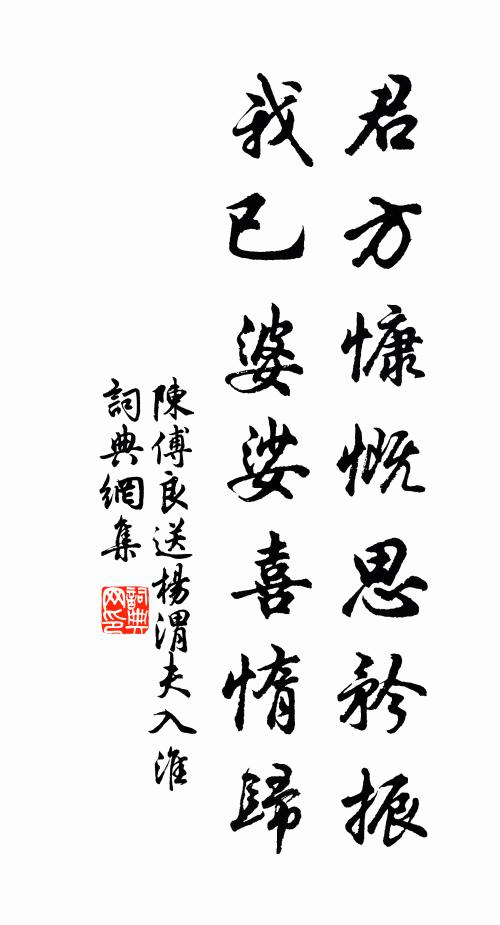 君方慷慨思矜振
我已婆娑喜惰歸
陳傅良送楊渭夫入淮
詞典網集
詞典网印